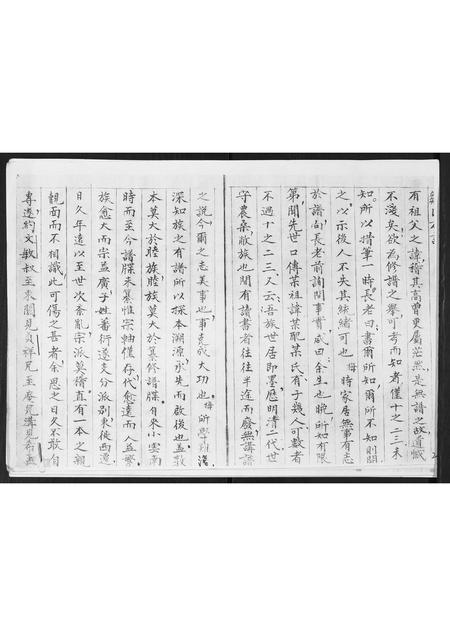 有祖父之諱稽其高曾更屬茫然是無譜之故道慨
不淺矣欲為修譜之舉可考而知者僅十之二三未
知所以措筆一時長老曰書爾所知爾所不知則闕
之以示後人不失其緒緒可也梅時家居無事有志
於譜向長老前詢問事實咸曰余生也晚所知有限
第聞先世口傳某祖諱某配某氏有子幾人可數者
不過十之二三又云吾族世居即墨歷明清二代世
守農桑敝族也間有讀書者往往半途而廢無講譜
之說今爾之志美事也事克成大功也梅所學淺
深知族之有譜所以探本溯源承先而啟後也蓋敦
本莫大於睦族睦族莫大於纂修譜牒自來小雲南
時而至今譜牒未纂惟宗軸僅存代愈遠而人益繁
族愈大而宗益廣子姓蕃衍遷支分派別東徙西遷
日久年遠以至世次紊亂宗派莫稽直有一本之親
覿面而不相識此可傷之甚者余思之日久不敢自
專遂約文敏叔至東關見貞祥兄至